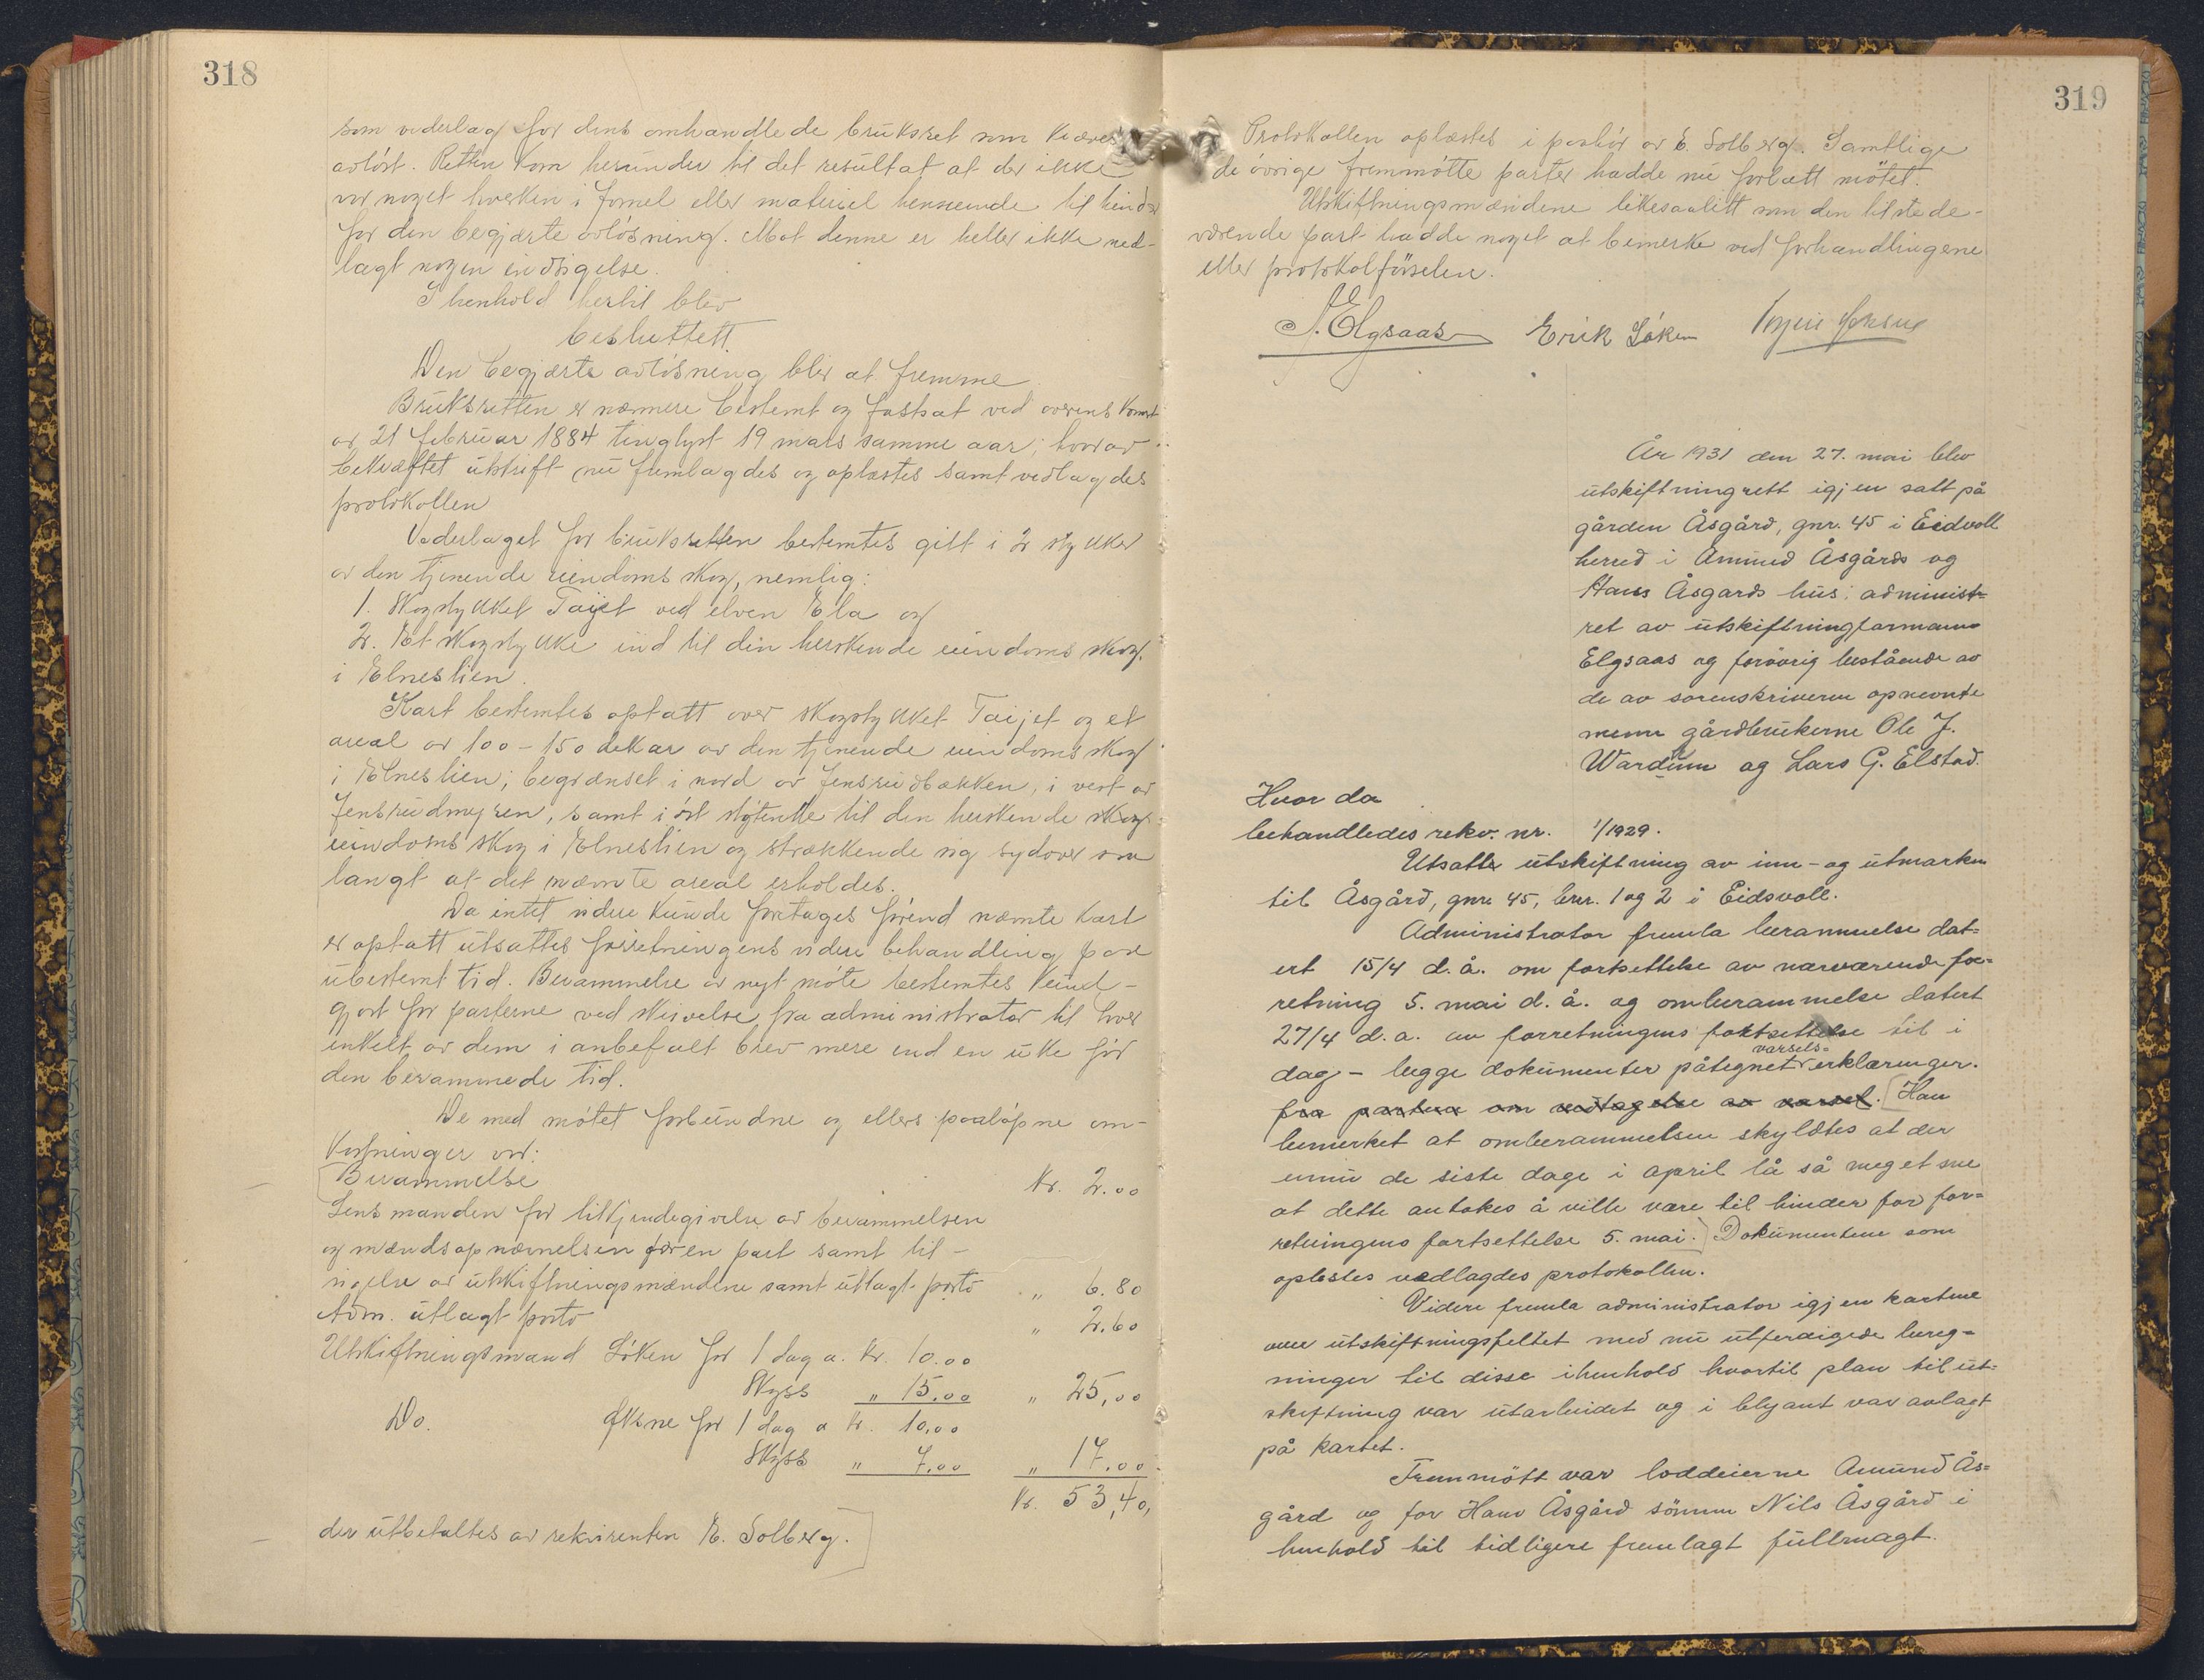 318
som vederlag for dens omhandlede bruksret som kræves
avløst. Retten kom herunder til det resultat at der ikke
var noget hverken i formel eller materiel henseende til hinder
for den begjærte avløsning. Mot denne er heller ikke ned-
lagt nogen indsigelse.
I henhold hertil blev
besluttett.
Den begjærte avløsning blir at fremme.
Bruksretten er nærmere bestemt og fastsat ved overenskomst
av 21 februar 1884 tinglyst 19 mars samme aar; hvorav
bekræftet utskrift nu fremlagdes og oplæstes samt vedlagdes
protokollen
Vederlaget for bruksretten bestemtes gitt i 2 stykker
av den tjenende eiendoms skog, nemlig:
1. Skogstykket Taijet ved elven Ela og
2. Et skogstykke ind til den herskende eiendoms skog
i Elneslien.
Kart bestemtes optatt over skogstykket Taijet og et
areal av 100-150 dekar av den tjenende eiendoms skog
i Elneslien; begrænset i nord av Jensrudbækken, i vest av
Jensrudmyren, samt i øst støtende til den herskende skog
eiendoms skog i Elneslien og strækkende sig sydover saa
langt at det nævnte areal erholdes.
Da intet videre kunde foretages førend nævnte kart
er optatt utsattes forretningens videre behandling paa
ubestemt tid. Berammelse av nyt møte bestemtes kund-
gjort for parterne ved skrivelse fra administrator til hver
enkelt av dem i anbefalt brev mere end en uke før
den berammede tid.
De med møtet forbundne og ellers paaløpne om-
kostninger var:
Berammelse Kr. 2.00
Lensmanden for tilkjendegivelse av berammelsen
og mændsopnævnelsen for en part samt til-
sigelse av utskiftningsmændene samt utlagt porto " 6.80
Adm. utlagt porto " 2.60
Utskiftningsmand Løken for 1 dag a. kr. 10.00
Skyss " 15.00 " 25,00
Do. Øksne for 1 dag a kr. 10,00
Skyss " 7.00 " 17.00
Kr. 53,40,
der utbetaltes av rekvirenten E. Solberg.
319
Protokollen oplæstes i paahør av E. Solberg. Samtlige
de øvrige fremmøtte parter hadde nu forlatt møtet.
Utskiftningsmændene likesaalitt som den tilstede-
værende part hadde noget at bemerke ved forhandlingene
eller protokolførselen.
J. Elgsaas Erik Løken
År 1931 den 27. mai blev
utskiftningrett igjen satt på
gården Åsgård, gnr. 45 i Eidvoll
herred i Amund Åsgårds og
Hans Åsgards hus: administ-
ret av utskiftningformann
Elgsaas og forøvrig bestående av
de av sorenskriveren opnevnte
menn gårdbrukerne Ole J.
Wardum og Lars G. Elstad.
Hvor da
behandledes rekv. nr. 1/1929.
Utsatte utskiftning av inn- og utmarken
til Åsgård, gnr. 45, brnr. 1 og 2 i Eidsvoll.
Administrator fremla berammelse dat-
ert 15/4 d. å. om fortsettelse av nærværende for-
retning 5. mai d. å. og omberammelse datert
27/4 d. a. av forretningens foktsettelse til i
dag - begge dokumenter påtegnet varsels-erklæringer.
fra partene om vedtagelse av varsel. Han
bemerket at omberammelsen skyldtes at der
ennu de siste dage i april lå så meget sne
at dette antokes å ville være til hinder for for-
retningens fortsettelse 5. mai. Dokumentene som
oplestes vedlagdes protokollen.
Videre fremla administrator igjen kartene
over utskiftningsfeltet med nu utferdigede bereg-
ninger til disse ihenhold hvortil plan til ut-
skiftning var utarbeidet og i blyant var avlagt
på kartet.
Fremmött var loddeierne Amund Ås-
gård og for Hans Åsgård sönnen Nils Åsgård i
henhold til tidligere fremlagt fullmagt.